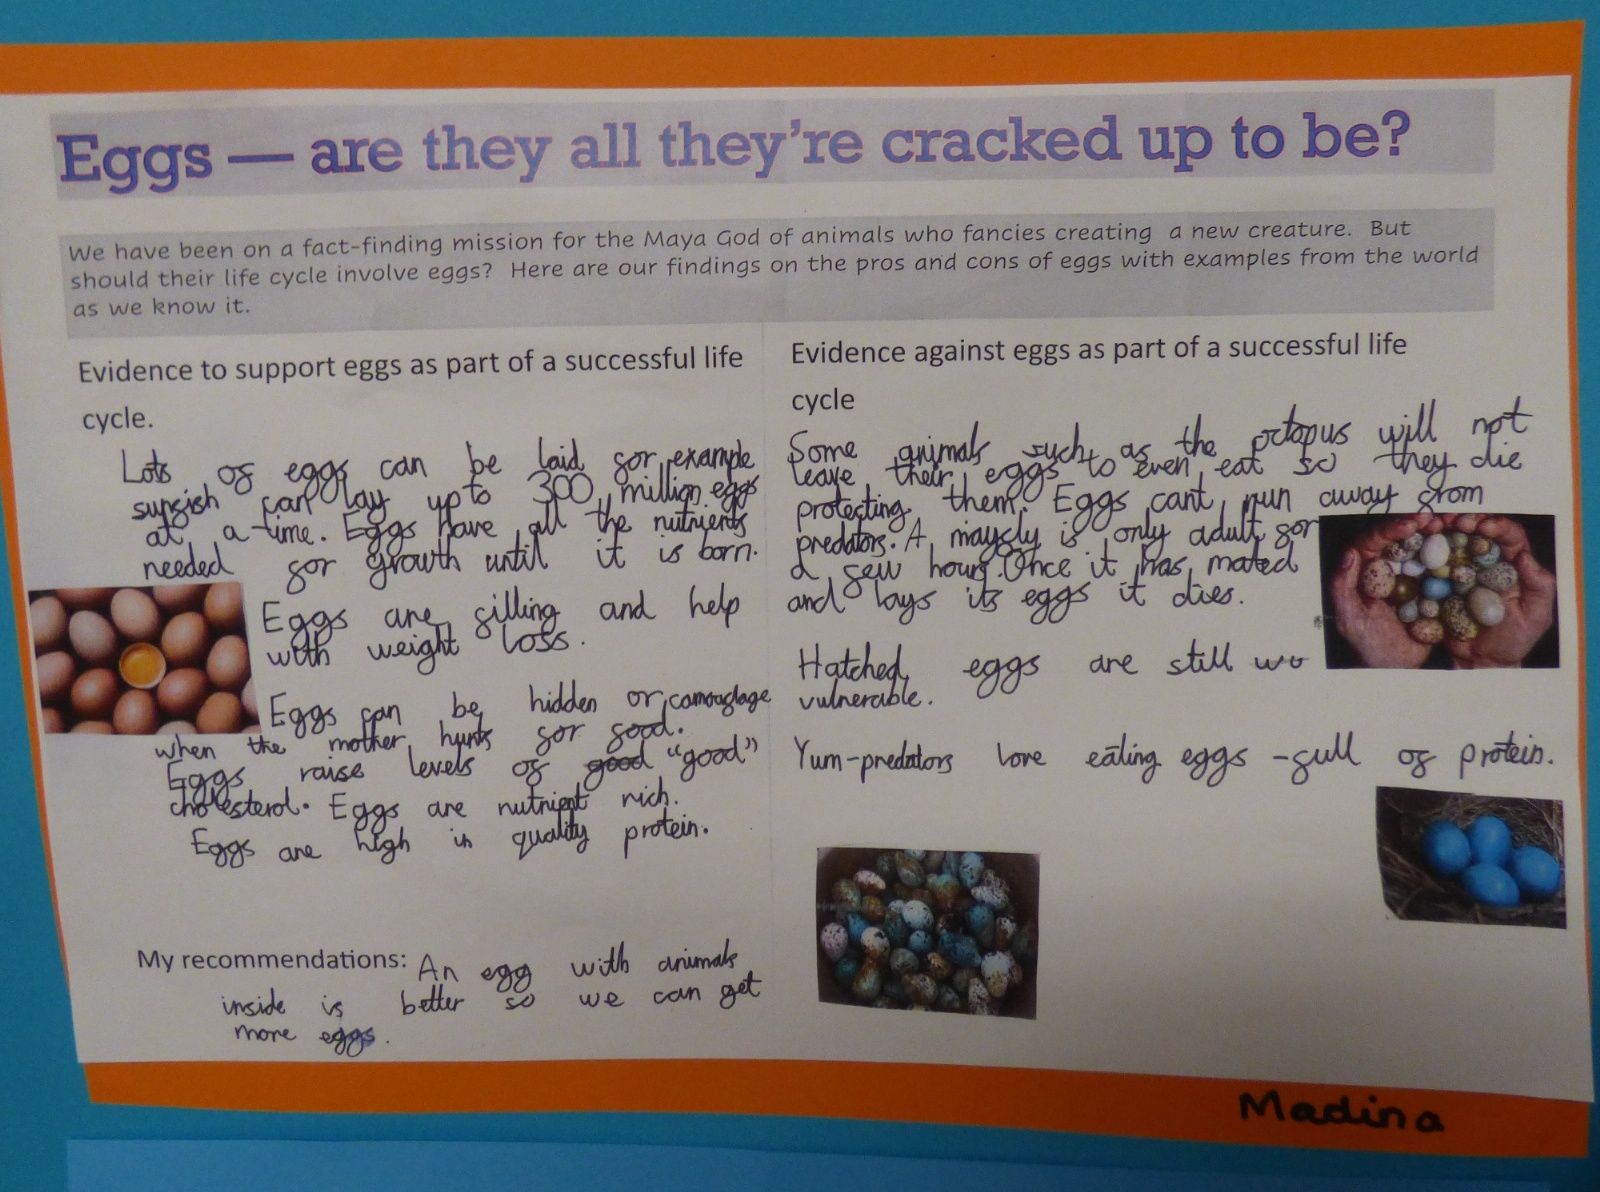 Eggs — are they all they're cracked up to be?
We have been on a fact-finding mission for the Maya God of animals who fancies creating a new creature. But
should their life cycle involve eggs? Here are our findings on the pros and cons of eggs with examples from the world
as we know it.
Evidence to support eggs as part of a successful life
cycle.
Lots of eggs can be laid for example
sunfish can lay up to 300 million eggs
at a time. Eggs have all the nutrients
needed for growth until it is born.
Eggs are filling and help
with weight loss.
Eggs can be hidden or camouflage
when the mother hunts for food.
Eggs raise levels of good "good"
cholesterol. Eggs are nutrient rich.
Eggs are high in quality protein.
My recommendations: An egg with animals
inside is better so we can get
more eggs.
Evidence against eggs as part of a successful life
cycle
Some animals such as the octopus will not
leave their eggs to even eat so they die
protecting them. Eggs cant run away from
predators. A mayfly is only adult for
a few hours. Once it has mated
and lays its eggs it dies.
Hatched eggs are still wo
vulnerable.
Yum-predators love eating eggs - full of protein.
Madina